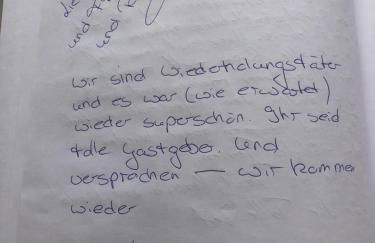 die
und
und
wir sind Wiederholungstäter
und es war (wie erwartet)
wieder superschön. Ihr seid
tolle Gastgeber. Und
versprochen — wir kommen
wieder